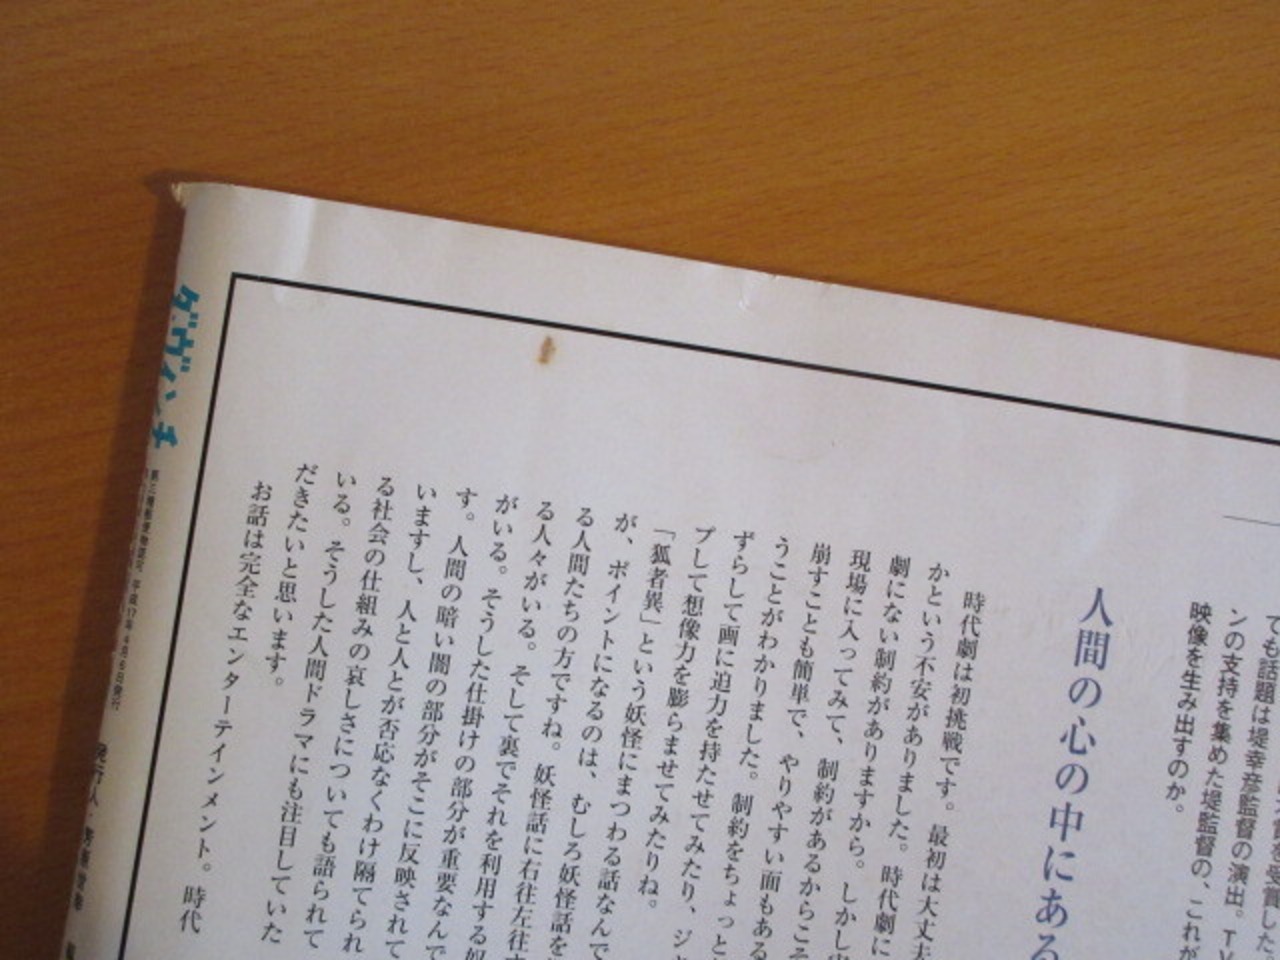 でも話題は堤幸彦監督の演出。TV
ンの支持を集めた堤監督の、これが
映像を生み出すのか。
人間の心の中にある
時代劇は初挑戦です。最初は大丈夫
かという不安がありました。時代劇に
劇にない制約がありますから。しかし
現場に入ってみて、制約があるからこそ
崩すことも簡単で、やりやすい面もある
うことがわかりました。制約をちょっと
ずらして画に迫力を持たせてみたり、ジ
プして想像力を膨らませてみたりね。
「狐者異」という妖怪にまつわる話なんで
が、ポイントになるのは、むしろ妖怪話を
る人間たちの方ですね。妖怪話に右往左往
る人々がいる。そして裏でそれを利用する奴
がいる。そうした仕掛けの部分が重要なんで
す。人間の暗い闇の部分がそこに反映されて
いますし、人と人とが否応なくわけ隔てられ
る社会の仕組みの哀しさについても語られて
いる。そうした人間ドラマにも注目していた
だきたいと思います。
お話は完全なエンターテインメント。時代
ダ・ヴィンチ
第三種郵便物認可 平成17年4月6日発行
発行人